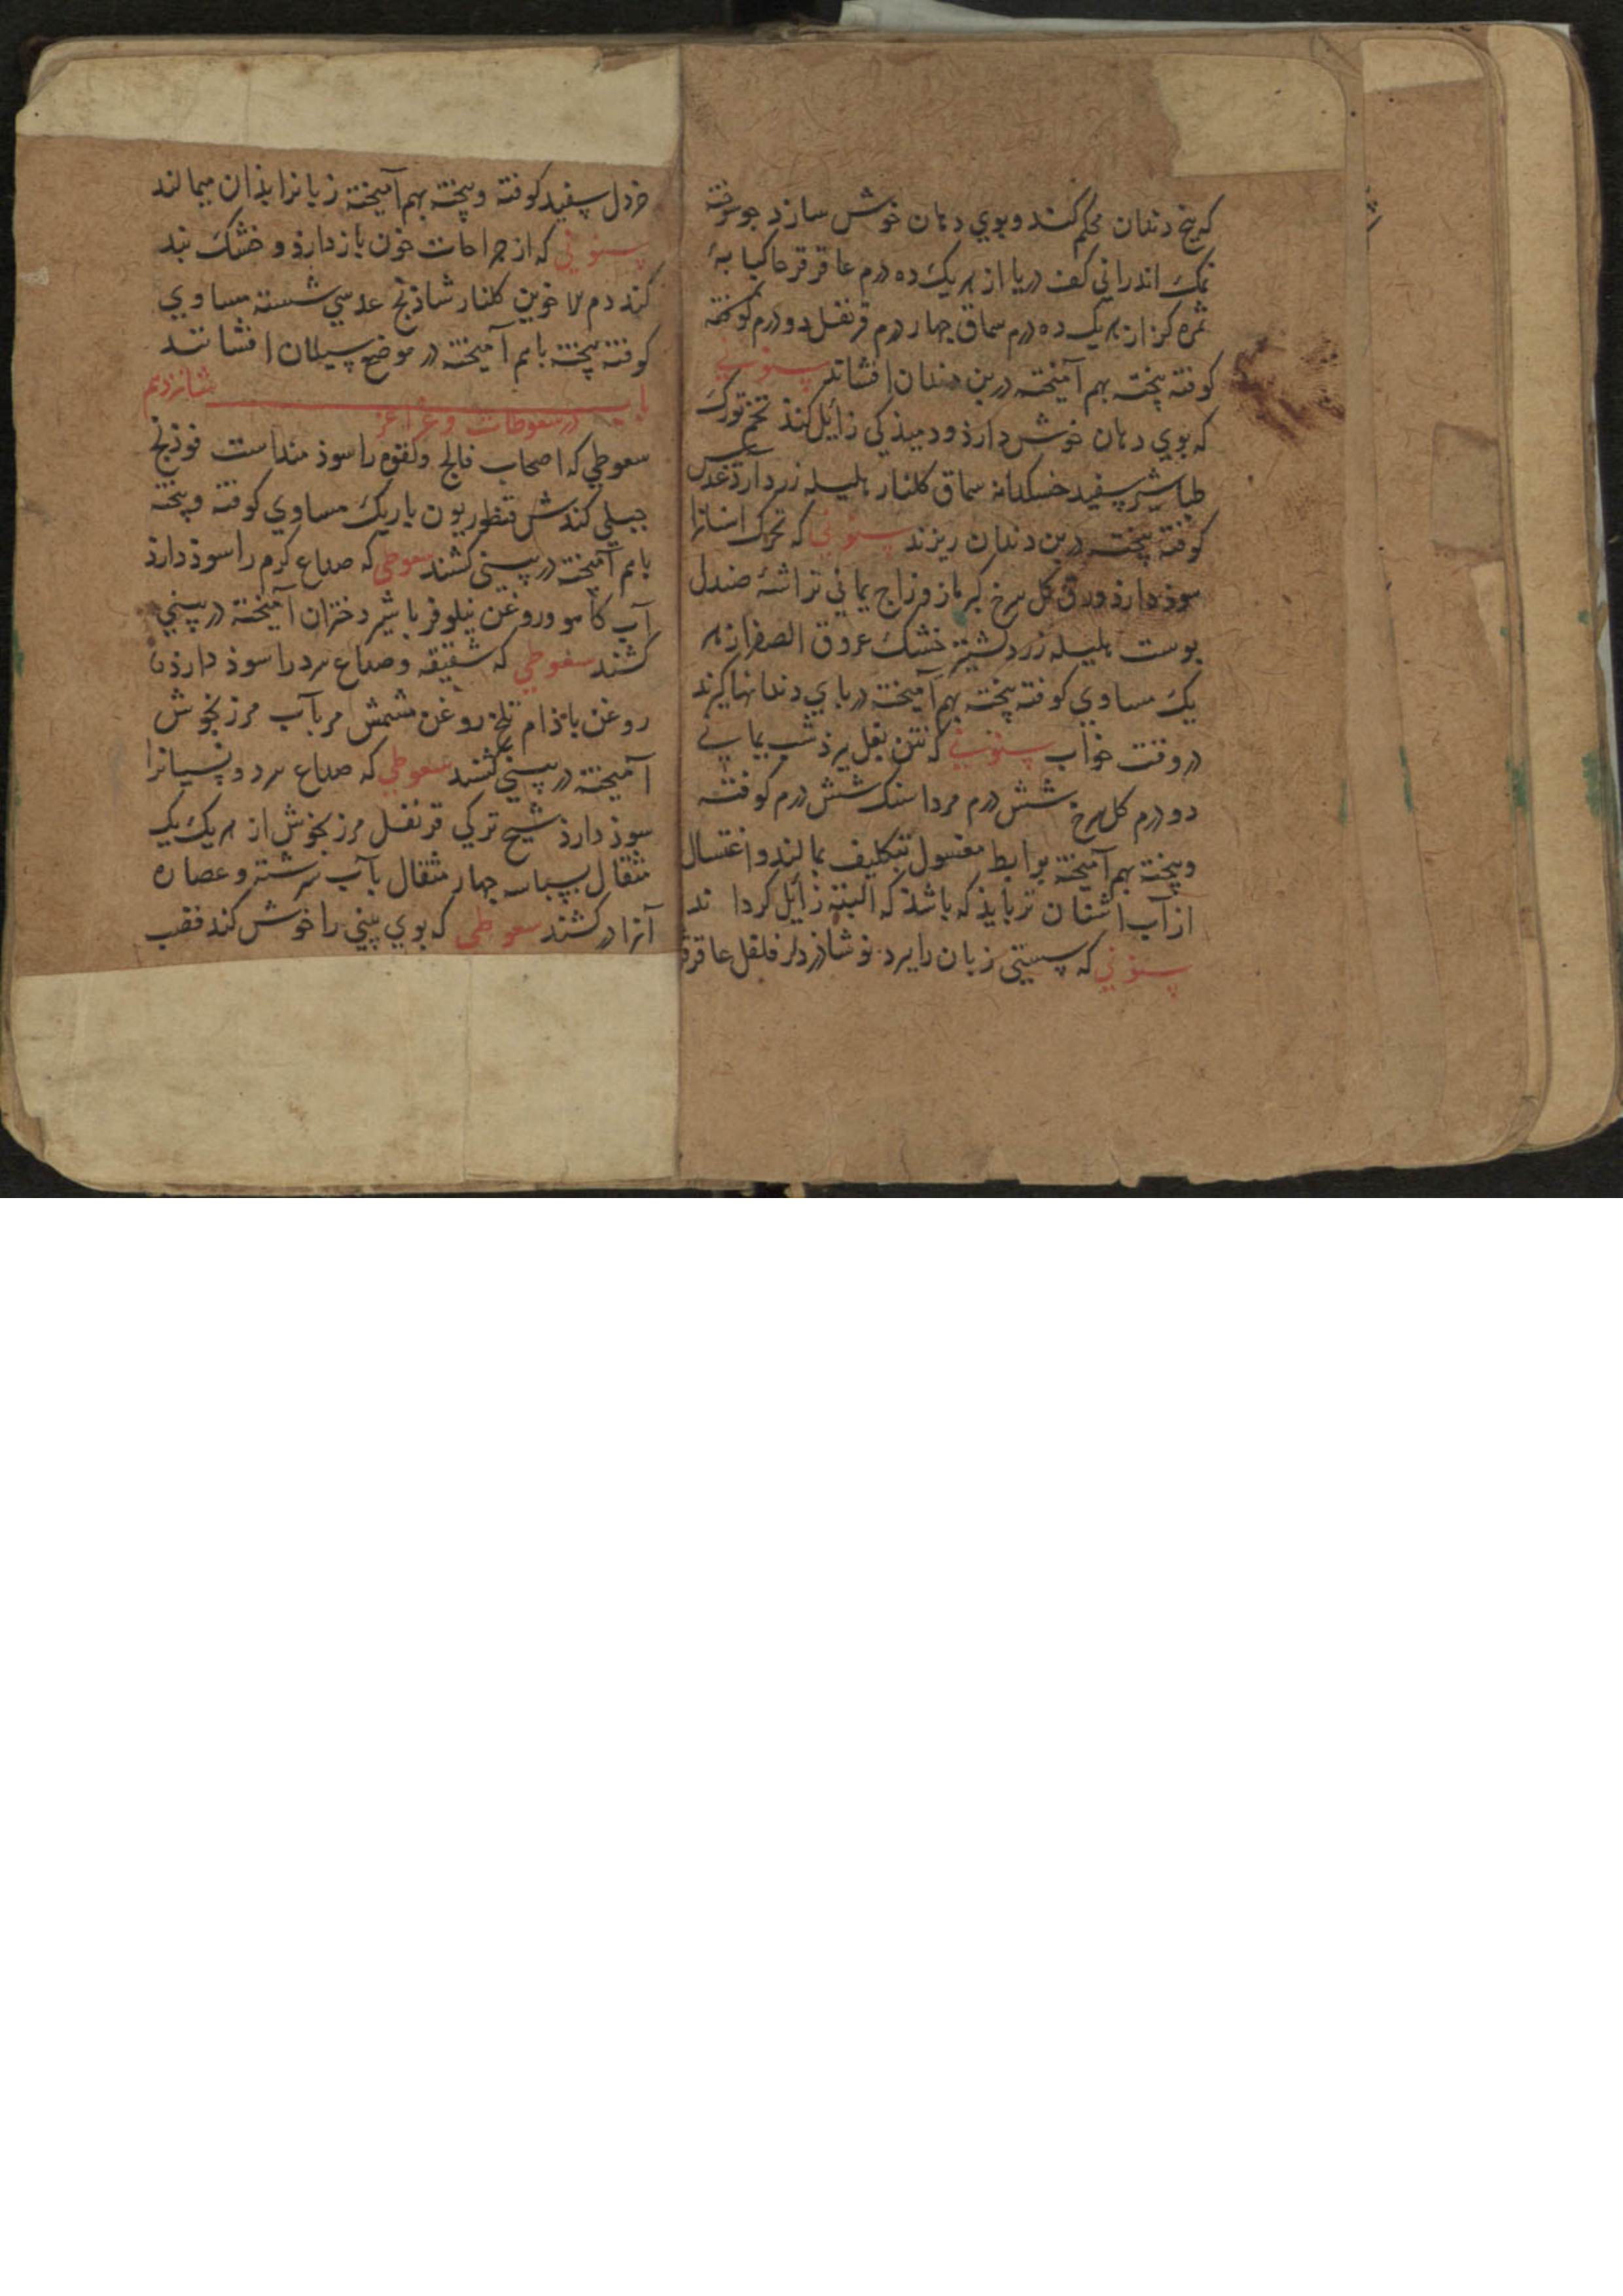 که بیخ دندان محکم کند و بوي دهان خوش سازد جو سوخته
نمک اندرانی کف دریا از هر یک ده درم عاقرقرحا کبابهٔ
ثمره کز از هر یک ده درم سماق چهار درم قرنفل دو درم کوفته
کوفته بیخته بهم آمیخته در بن دندان افشانند سنونی
که بوي دهان خوش دارذ و دمیذکی زائل کنذ تخم تورک
طباشیر سفید خسکدانه سماق کلنار هلیله زرد ارد عدس
کوفته بیخته در بن دندان ریزند سنونی که تحرک اسنانرا
سوذ دارذ ورق کل سرخ کزمازو زاج یمانی تراشهٔ صندل
پوست هلیله زرد کشنیز خشک عروق الصفر از هر
یک مساوي کوفته بیخته بهم آمیخته در پاي دندانها کیرند
در وقت خواب سنونی که نتن بغل ببرذ شب یمانی
دو درم کل سرخ شش درم مرداسنک شش درم کوفته
وبیخته بهم آمیخته بر ابط مغسول بتکلیف بمالند و اغتسال
از آب اشنان تر بایذ که باشذ که البته زائل کرداند
سنونی که سستی زبان را ببرد نوشاذر دار فلفل عاقرقر
خردل سفید کوفته و بیخته بهم آمیخته زبانرا بذان میمالند
سنونی که از جراحات خون باز دارذ و خشک بند
کند دم لاخوین کلنار شاذنج عدسي شسته مساوي
کوفته بیخته باهم آمیخته در موضع سیلان افشانند
باب شانزدهم
در سعوطات و غراغر
سعوطی که اصحاب فالج ولقوه را سوذمند است فوذنج
جبلی کندش قنطوریون باریک مساوي کوفته و بیخته
باهم آمیخته در بینی کشند سعوطی که صداع کرم را سوذ دارذ
آب کاهو و روغن نیلوفر با شیر دختران آمیخته در بینی
کشند سعوطی که شقیقه و صداع سرد را سوذ دارذ
روغن باذام تلخ روغن مشمش مر بآب مرزنجوش
آمیخته در بینی کشند سعوطی که صداع سرد و نسیانرا
سوذ دارذ شیح ترکي قرنفل مرزنجوش از هر یک یک
مثقال بسباسه چهار مثقال بآب سرشته و عصاره
آنرا در کشند سعوطی که بوي بینی را خوش کند قصب